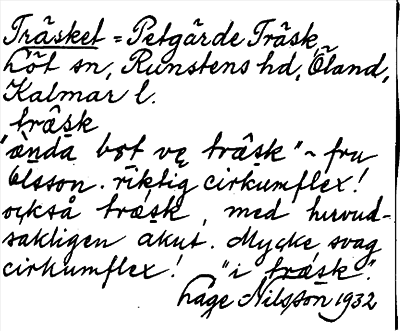 Träsket = Petgärde Träsk,
Löt sn, Runstens hd, Öland,
Kalmar l.
träsk
"ända bot ve träsk" ~ fru
Olsson. riktig cirkumflex!
också träsk, med huvud-
sakligen akut. Mycke svag
cirkumflex! "i träsk".
Lage Nilsson 1932